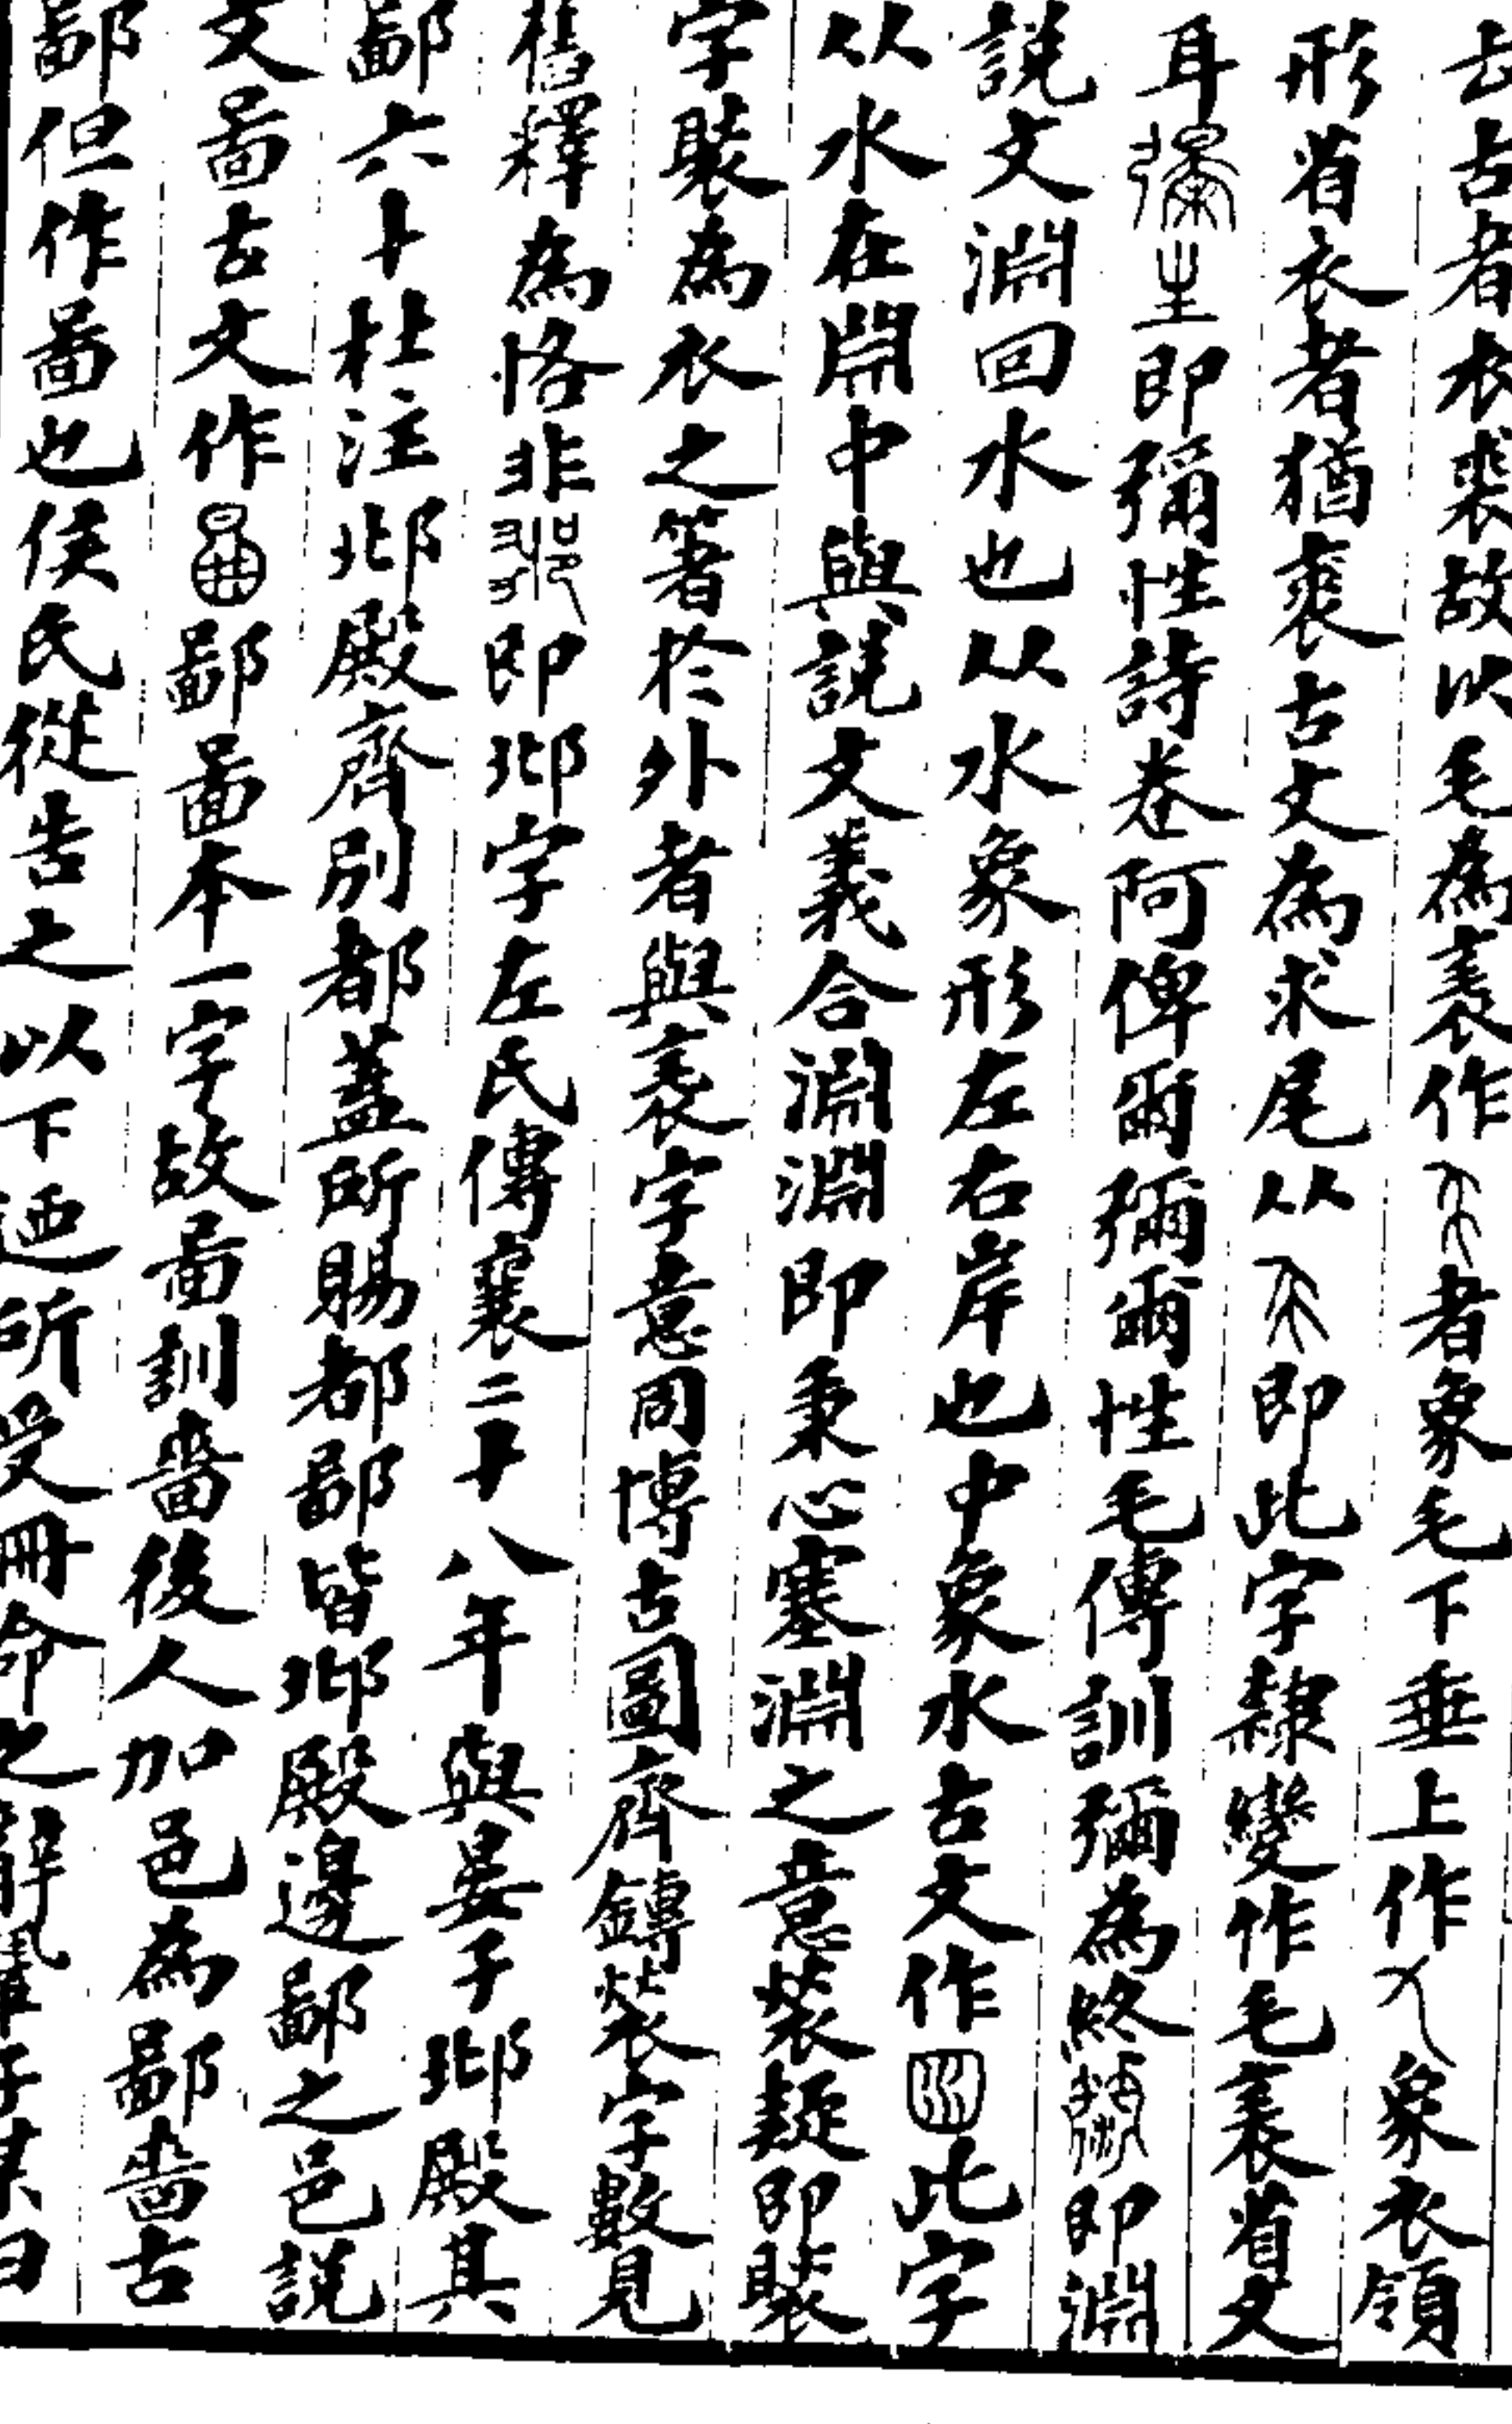 去古者衣裘故以毛為裹作者象毛下垂上作象衣領
形省衣者猶裘古文為求尾从即此字隸變作毛裹省文
耳即彌性詩卷阿俾爾彌爾性毛傳訓彌為終即淵
說文淵回水也从水象形左右岸也中象水古文作此字
从水在𣶒中與說文義合淵淵即秉心塞淵之意裝疑即褧
字褧為衣之著於外者與表字意同博古圖齊鎛裝字數見
舊釋為恪非即邶字左氏傳襄二十八年與晏子邶殿其
鄙六十杜注邶殿齊別都蓋所賜都鄙皆邶殿邊鄙之邑說
文啚古文作鄙啚本一字故啚訓嗇後人加邑為鄙嗇古
鄙但作啚也侯氏從告之以下迺所受冊命之辭